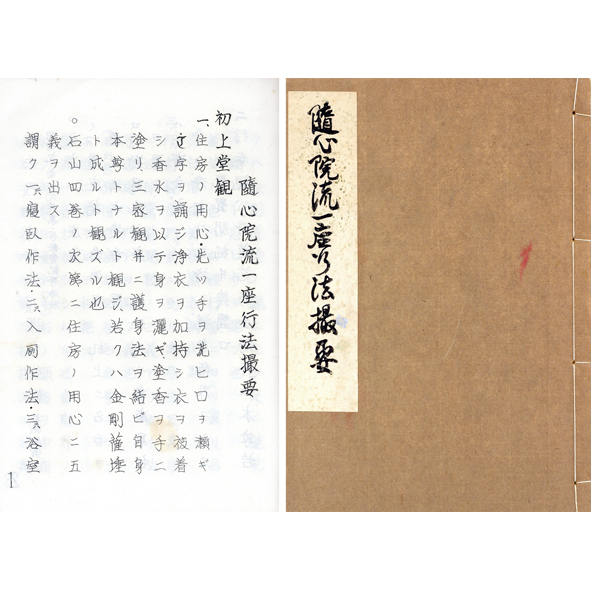 隨心院流一座行法撮要
隨心院流一座行法撮要
初上堂観
一、住房ノ用心・先ツ手ヲ洗ヒ口ヲ瀬ギ
字ヲ誦ジ浄衣ヲ加持シ衣ヲ被着
シ香水ヲ以テ身ヲ灑ギ塗香ヲ手ニ
塗リ三密観并ニ護身法ヲ結ビ自身
本尊トナルト観ジ、若クハ金剛薩埵
ト成ルト観ズル也
。石山四巻ノ次第ニ住房ノ用心ニ五
義ヲ出ス
謂ク一ハ寝臥作法・二ハ入厠作法・三ハ浴室
1